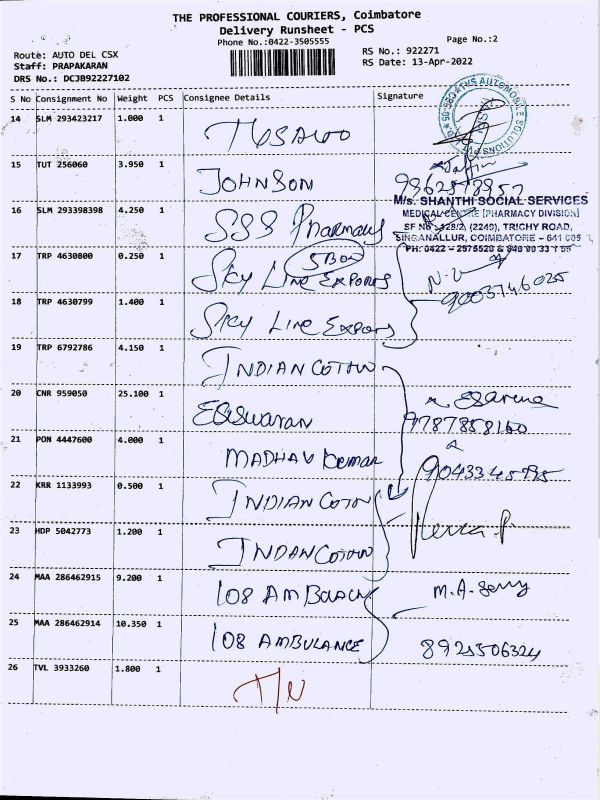 THE PROFESSIONAL COURIERS, Coimbatore
Delivery Runsheet - PCS
Phone No.:0422-3505555
Page No.:2
Route: AUTO DEL CSX
RS No.: 922271
Staff: PRAPAKARAN
RS Date: 13-Apr-2022
DRS No.: DCJB92227102
S No Consignment No Weight PCS Consignee Details Signature
14 SLM 293423217 1.000 1
15 TUT 256060 3.950 1 JOHNSON
M/s. SHANTHI SOCIAL SERVICES
16 SLM 293398398 4.250 1 SSS Pharmacy
MEDICAL CENTRE (PHARMACY DIVISION)
SF No. 128/2, (2249), TRICHY ROAD,
SINGANALLUR, COIMBATORE - 641 005
17 TRP 4630800 0.250 1 Sky Line Exports
9003746025
18 TRP 4630799 1.400 1 Sky Line Exports
19 TRP 6792786 4.150 1 INDIAN COTTON
20 CNR 959050 25.100 1 ESSwaran
9787858160
21 PON 4447600 4.000 1 MADHAV Kumar
22 KRR 1133993 0.500 1 INDIAN COTON
23 HDP 5042773 1.200 1 INDAN COTON
24 MAA 286462915 9.200 1 108
25 MAA 286462914 10.350 1 108 AMBULANCE
8925506324
26 TVL 3933260 1.800 1 T/N